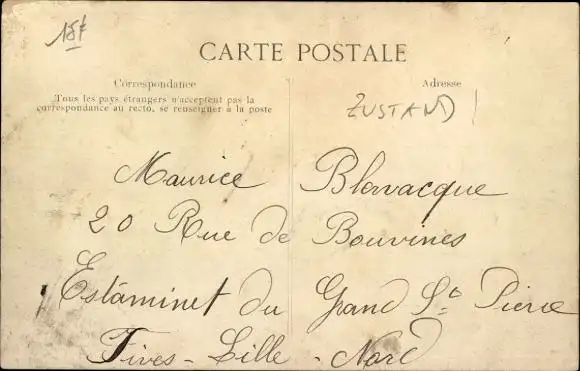 18f
CARTE POSTALE
Correspondance
Tous les pays étrangers n'acceptent pas la
correspondance au recto, se renseigner à la poste
Adresse
ZUSTAND!
Maurice Blavacque
20 Rue de Bouvines
Estaminet du Grand St Pierre
Fives-Lille-Nord